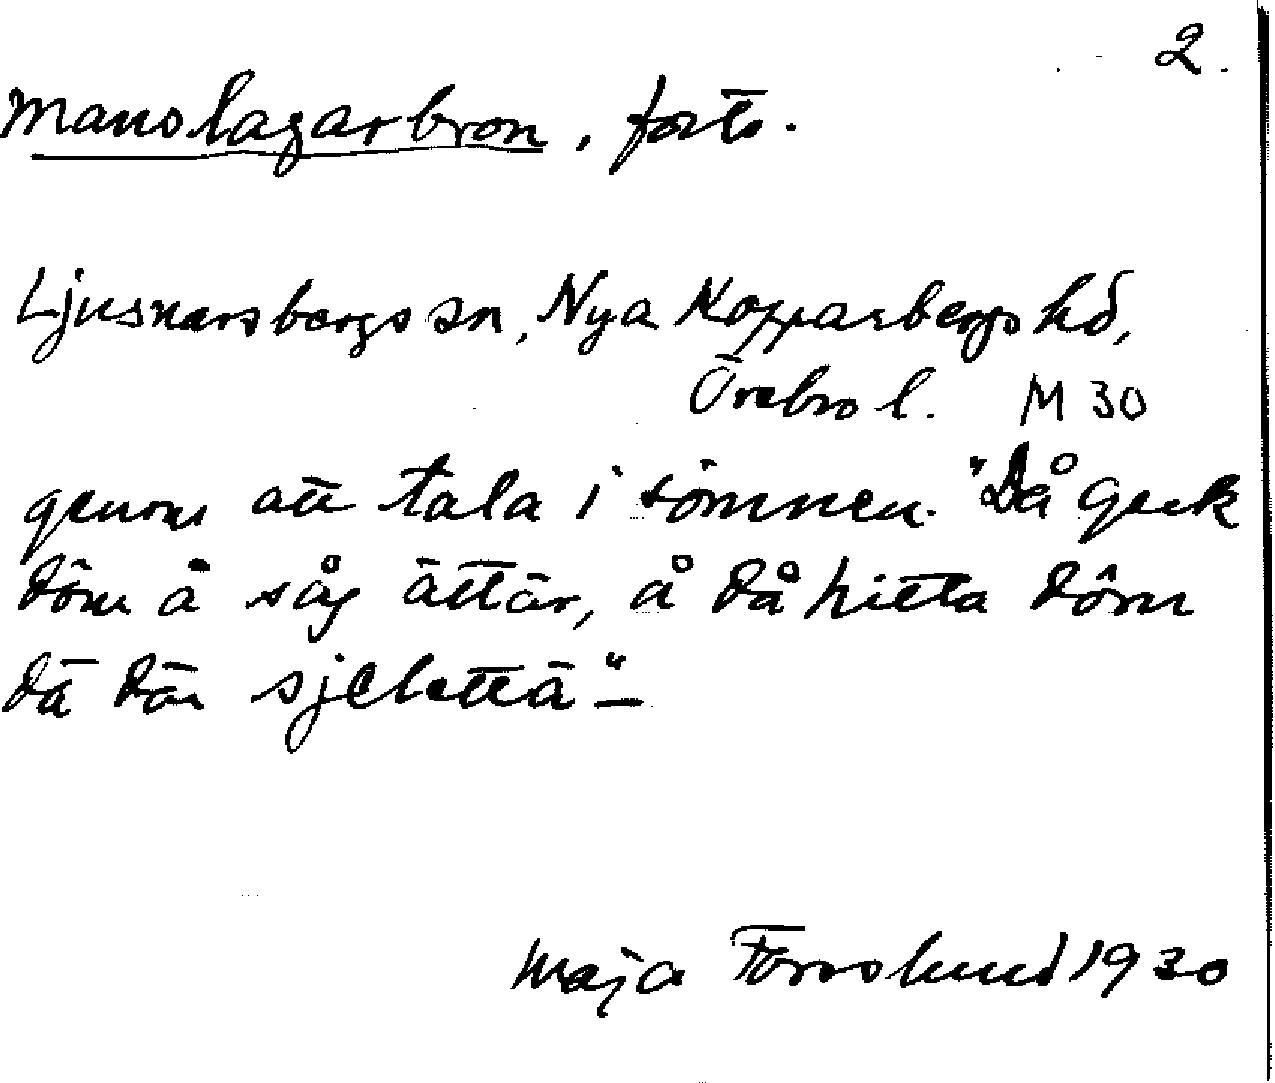 2.
Manslagarbron, forts.
Ljusnarsbergs sn, Nya Kopparbergs hd,
Örebro l. M 30
genom att tala i sömnen. "Då geck
döm å såg ättär, å då hitta döm
dä där sjelettä" –
Maja Forsslund 1930